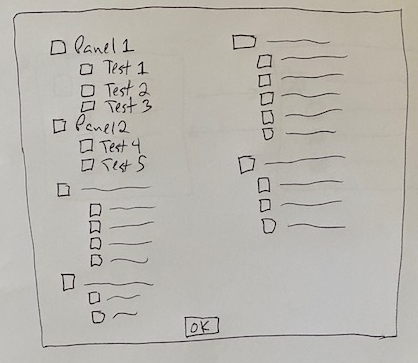 Panel 1
Test 1
Test 2
Test 3
Panel 2
Test 4
Test 5
OK